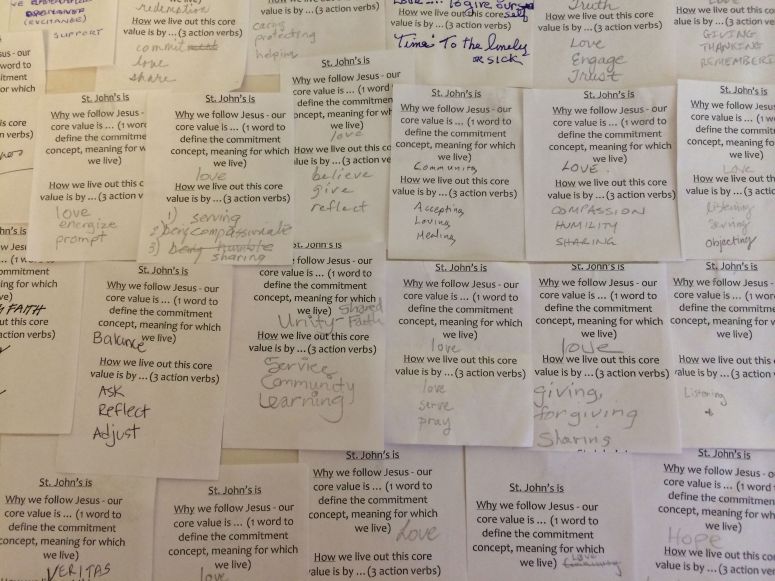 EXPERIENCE
(EXCHANGE)
SUPPORT
redemption
How we live out this core
value is by ... (3 action verbs)
commit
love
share
caring
protecting
helping
to give
How we live out this core
value is by ... (3 action verbs)
Time To the lonely
or sick
Truth
How we live out this core
value is by ... (3 action verbs)
Love
Engage
Trust
How we live out this core
value is by ... (3 action
GIVING
THANKING
St. John's is
Why we follow Jesus - our
core value is ... (1 word to
define the commitment
concept, meaning for w
we live)
How we live out this c
value is by ... (3 action v
love
energize
prompt
St. John's is
Why we follow Jesus - our
core value is ... (1 word to
define the commitment
concept, meaning for which
we live)
love
How we live out this core
value is by ... (3 action verbs)
1) serving
2) being compassionate
3) being humble
sharing
St. John's is
Why we follow Jesus - our
core value is ... (1 word
define the commitment
concept, meaning for wh
we live)
love
How we live out this co
value is by ... (3 action ve
believe
give
reflect
St. John's is
Why we follow Jesus - our
core value is ... (1 word to
define the commitment
concept, meaning for which
we live)
Community
How we live out this core
value is by ... (3 action verbs)
Accepting
Loving
Healing
St. John's is
Why we follow Jesus - our
core value is ... (1 word to
define the commitment
concept, meaning for which
we live)
LOVE
How we live out this core
value is by ... (3 action verbs)
COMPASSION
HUMILITY
SHARING
St. John's is
Why we follow Jesus
core value is ... (1 wo
define the commitm
concept, meaning for
we live)
LOVE
How we live out this
value is by ... (3 actio
Listening
Serving
Objecting
FAITH
St. John's is
Why we follow Jesus - our
core value is ... (1 word to
define the commitment
concept, meaning for which
we live)
Balance
How we live out this core
value is by ... (3 action verbs)
Ask
Reflect
Adjust
St. John's is
follow Jesus - our
value is ... (1 word to
define the commitment
concept, meaning for which
we live)
Shared
Unity Faith
How we live out this core
value is by ... (3 action verbs)
Service
Community
Learning
St. John's is
Why we follow Jesus - our
core value is ... (1 word to
define the commitment
concept, meaning for which
we live)
love
How we live out this core
value is by ... (3 action verbs)
love
serve
pray
St. John's is
Why we follow Jesus - our
core value is ... (1 word to
define the commitment
concept, meaning for which
we live)
love
How we live out this core
value is by ... (3 action verbs)
giving,
forgiving
Sharing
St. John's is
Why we follow Jesus - o
core value is ... (1 word
define the commitmen
concept, meaning for w
we live)
How we live out this co
value is by ... (3 action v
Listening
St. John's is
Why we follow Jesus - our
core value is ... (1 word to
define the commitment
concept, meaning for which
we live)
VERITAS
St. John's is
Why we follow Jesus - our
core value is ... (1 word to
define the commitment
concept, meaning for which
we live)
love
St. John's is
Why we follow Jesus - our
core value is ... (1 word to
define the commitment
concept, meaning for which
we live)
Love
How we live out this core
value is by ... (3 action verbs)
St. John's is
Why we follow Jesus - our
core value is ... (1 word to
define the commitment
concept, meaning for which
we live)
Love
St. John's is
Why we follow Jesus - o
core value is ... (1 word
define the commitment
concept, meaning for wh
we live)
Hope
How we live out this cor
value is by ... (3 action ver